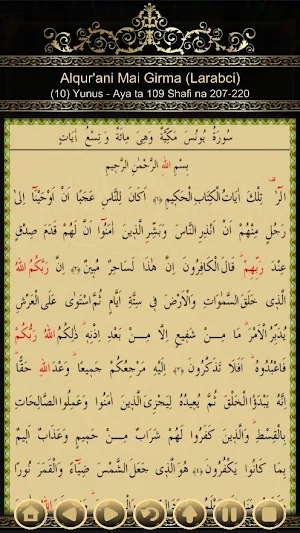 Alqur'ani Mai Girma (Larabci)
(10) Yunus - Aya ta 109 Shafi na 207-220
سُورَةُ يُونُسَ مَكِّيَّةٌ وَهِىَ مِائَةٌ وَ تِسْعُ اٰيَاتٍ
بِسْمِ اللهِ الرَّحْمٰنِ الرَّحِيمِ
الٓرٰ ۗ تِلْكَ اٰيَاتُ الْكِتَابِ الْحَكِيمِ ﴿١﴾ اَكَانَ لِلنَّاسِ عَجَبًا اَنْ اَوْحَيْنَٓا اِلٰى
رَجُلٍ مِنْهُمْ اَنْ اَنْذِرِ النَّاسَ وَبَشِّرِ الَّذِينَ اٰمَنُٓوا اَنَّ لَهُمْ قَدَمَ صِدْقٍ
عِنْدَ رَبِّهِمْ ۗ قَالَ الْكَافِرُونَ اِنَّ هٰذَا لَسَاحِرٌ مُبِينٌ ﴿٢﴾ اِنَّ رَبَّكُمُ اللهُ
الَّذِى خَلَقَ السَّمٰوَاتِ وَالْاَرْضَ فِى سِتَّةِ اَيَّامٍ ثُمَّ اسْتَوٰى عَلَى الْعَرْشِ
يُدَبِّرُ الْاَمْرَ ۗ مَا مِنْ شَفِيعٍ اِلَّا مِنْ بَعْدِ اِذْنِهِ ۗ ذٰلِكُمُ اللهُ رَبُّكُمْ
فَاعْبُدُوهُ ۗ اَفَلَا تَذَكَّرُونَ ﴿٣﴾ اِلَيْهِ مَرْجِعُكُمْ جَمِيعًا ۗ وَعْدَ اللهِ حَقًّا
اِنَّهُ يَبْدَؤُا الْخَلْقَ ثُمَّ يُعِيدُهُ لِيَجْزِىَ الَّذِينَ اٰمَنُوا وَعَمِلُوا الصَّالِحَاتِ
بِالْقِسْطِ ۗ وَالَّذِينَ كَفَرُوا لَهُمْ شَرَابٌ مِنْ حَمِيمٍ وَعَذَابٌ اَلِيمٌ
بِمَا كَانُوا يَكْفُرُونَ ﴿٤﴾ هُوَ الَّذِى جَعَلَ الشَّمْسَ ضِيَٓاءً وَالْقَمَرَ نُورًا